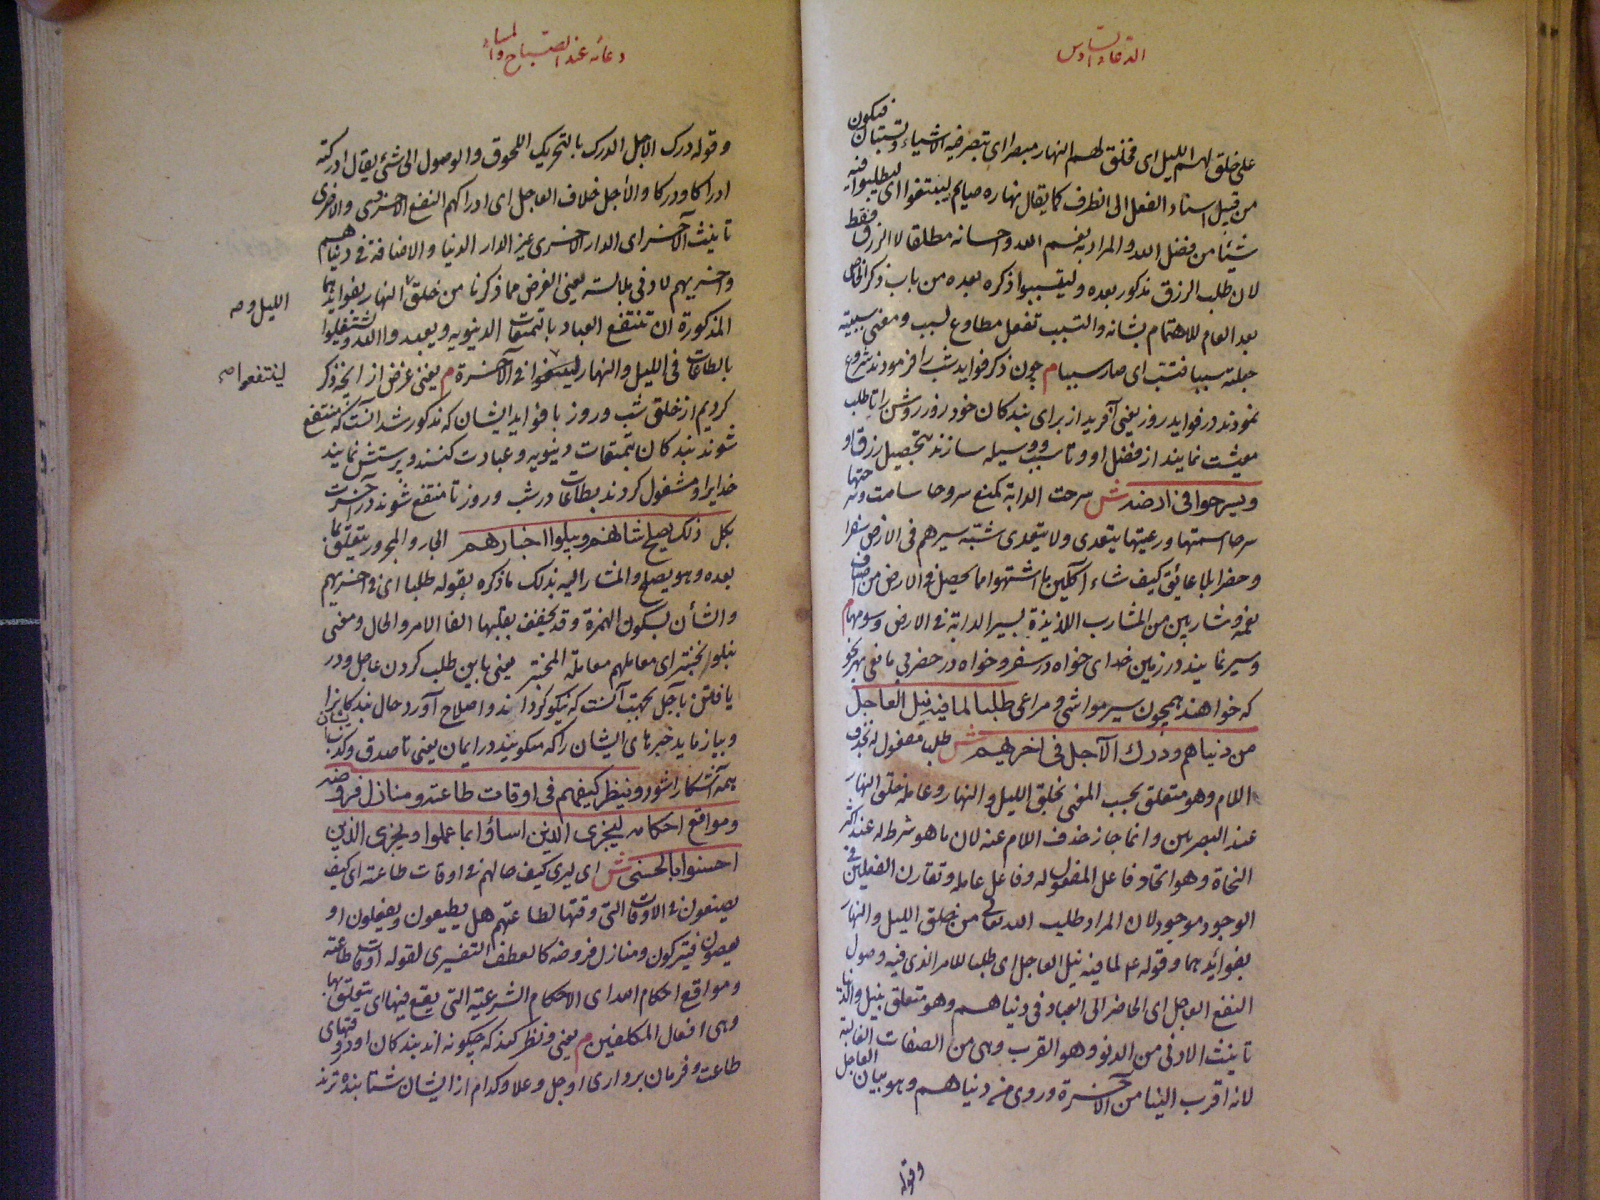 الدعاء السادس
على خلق لهم الليل اى فخلق لهم النهار مبصرا اى تبصر فيه الاشياء وتستبان فيكون
من قبيل اسناد الفعل الى الظرف كما يقال نهاره صايم ليبتغوا اى ليطلبوا فيه
شيئا من فضل الله والمراد به نعم الله واحسانه مطلقا لا الرزق فقط
لان طلب الرزق مذكور بعده وليتسببوا ذكره بعده من باب ذكر الخاص
بعد العام للاهتمام بشانه والتسبب تفعل مطاوع لسبب ومعنى سببته
جعلته سببا فتسبب اى صار سببا م چون ذكر فوايد شب را فرمودند شروع
نمودند در فوايد روز يعنى آفريد از براى بندكان خود روز روشن را تا طلب
معيشت نمايند از فضل او و تا سبب و وسيله سازند بتحصيل رزق او
ويسرحوا فى ارضه ش سرحت الدابة كمنع سروحا سامت وسرحتها
سرحا اسمتها ورعيتها يتعدى ولا يتعدى شبه سيرهم فى الارض سفرا
وحضرا بلا عايق كيف شاء آكلين ما اشتهوا مما يحصل فى الارض من اصناف
نعمه وشاربين من المشارب اللذيذة بسير الدابة فى الارض وسومها م
وسير نمايند در زمين خداى خواه در سفر و خواه در حضر بى مانعى بهر نحو
كه خواهند همچون سير مواشى و مراعى طلبا لما فيه نيل العاجل
من دنياهم ودرك الآجل فى اخريهم ش طلبا مفعول له بحذف
اللام وهو متعلق بحسب المعنى بخلق الليل والنهار وعامله خلق النهار
عند البصريين وانما جاز حذف اللام عنه لان ما هو شرط له عند اكثر
النحاة وهو اتحاد فاعل المفعول له وفاعل عامله وتقارن الفعلين فى
الوجود موجود لان المراد طلب الله تعالى من خلق الليل والنهار
بفوائدهما وقوله ع لما فيه نيل العاجل اى طلبا للامر الذى فيه وصول
النفع العاجل اى الحاضر الى العباد فى دنياهم وهو متعلق بنيل والدنيا
تانيث الادنى من الدنو وهو القرب وهى من الصفات الغالبة
لانه اقرب الينا من الآخرة وروى من دنياهم وهو بيان العاجل
وقوله
دعائه عند الصباح والمساء
وقوله درك الاجل الدرك بالتحريك اللحوق والوصول الى شئ يقال ادركته
ادراكا ودركا والأجل خلاف العاجل اى ادراكهم النفع الاخروى والاخرى
تانيث الآخر اى الدار الاخرى غير الدار الدنيا والاضافة فى دنياهم
واخريهم لادنى ملابسة يعنى الغرض مما ذكرنا من خلق النهار بفوايدهما
الليل و صه
المذكورة ان تنتفع العباد بالتمتعات الدنيويه ويعبدوا الله ويشتغلوا
بالطاعات فى الليل والنهار فى الآخرة م يعنى غرض از آنچه ذكر
لينتفعوا صه
كرديم از خلق شب و روز با فوايد ايشان كه مذكور شد آنست كه منتفع
شوند بندكان بتمتعات دنيويه و عبادت كنند و پرستش نمايند
خدايرا و مشغول كردند بطاعات در شب و روز تا منتفع شوند در آخرت
بكل ذلك يصلح شانهم ويبلوا اخبارهم الجار والمجرور يتعلق بما
بعده وهو يصلح والمشار اليه بذلك ما ذكره بقوله طلبا اى فى اخريهم
والشأن بسكون الهمزة وقد يخفف بقلبها الفا الامر والحال ومعنى
يبلو يختبر اى معاملهم معاملة المختبر يعنى باين طلب كردن عاجل و در
يافتن باجل بجهت آنست كه نيكو كرداند و اصلاح آورد حال بندكانرا
و بيازمايد خبرهاى ايشان را كه ميكويند در ايمان يعنى تا صدق و كذب ايشان
همه آشكارا شود وينظر كيف هم فى اوقات طاعته ومنازل فروضه
ومواقع احكامه ليجزى الذين اساؤا بما عملوا ويجزى الذين
احسنوا بالحسنى ش اى ليرى كيف حالهم فى اوقات طاعته اى كيف
يصنعون فى الاوقات التى وقتها لطاعتهم هل يطيعون ويفعلون او
يعصون فيتركون ومنازل فروضه كالعطف التفسيرى لقوله اوقات طاعته
ومواقع احكام الله اى الاحكام الشرعية التى يقع فيها اى يتعلق بها
وهى افعال المكلفين م يعنى و نظر كند كه چگونه اند بندكان او در وقتهاى
طاعت و فرمان بردارى او جل و علا و كدام از ايشان شتابنده ترند